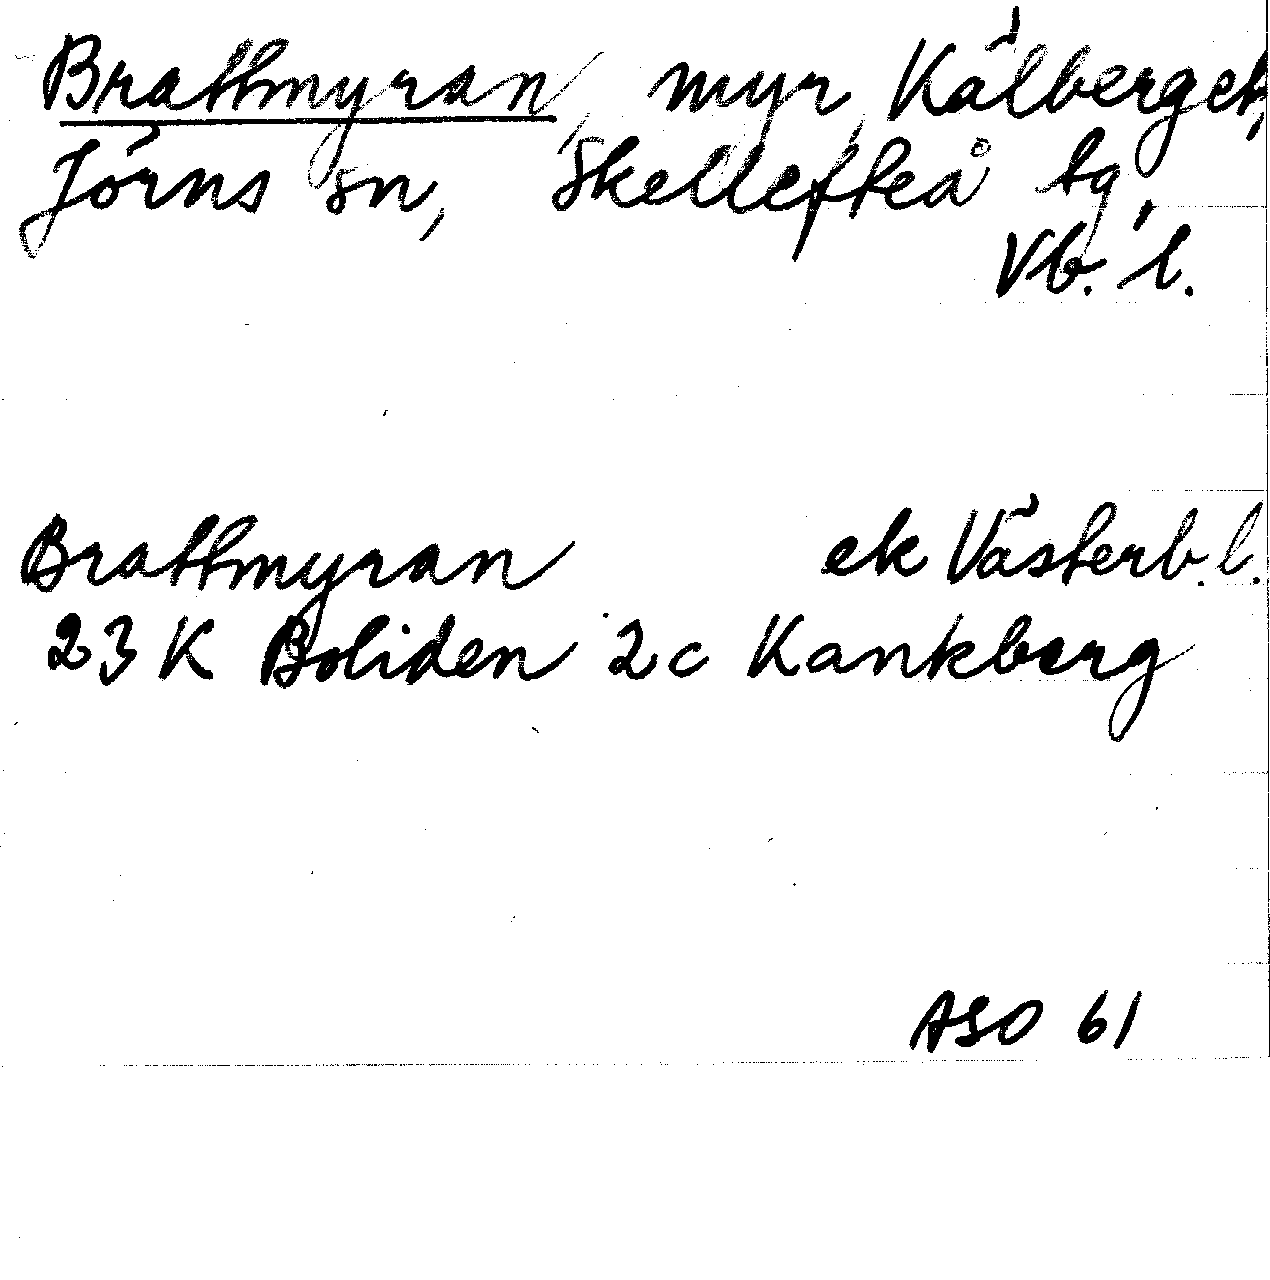 Brattmyran, myr, Kälberget,
Jörns sn, Skellefteå tg,
Vb. l.
Brattmyran ek Västerb. l.
23 K Boliden 2c Kankberg
ASO 61